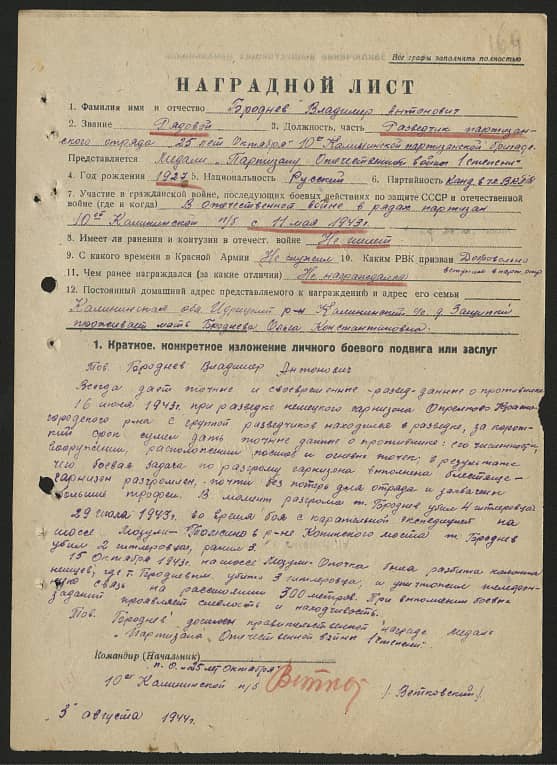 164
Все графы заполнять полностью
НАГРАДНОЙ ЛИСТ
1. Фамилия имя и отчество Броднев Владимир Антонович
2. Звание Рядовой 3. Должность, часть Разведчик партизан-
ского отряда "25 лет Октября" 10ой Калининской партизанской бригады
Представляется Медали "Партизану Отечественной войны 1 степени"
4. Год рождения 1927 5. Национальность Русский 6. Партийность Канд. в чл. ВКП/б
7. Участие в гражданской войне, последующих боевых действиях по защите СССР и отечественной
войне (где и когда) В Отечественной войне в рядах партизан
10ой Калининской п/б с 11 мая 1943г.
8. Имеет ли ранения и контузии в отечест. войне Не имеет
9. С какого времени в Красной Армии Не служил 10. Каким РВК призван Добровольно
вступил в парт. отр
11. Чем ранее награждался (за какие отличия) Не награждался
12. Постоянный домашний адрес представляемого к награждению и адрес его семьи
Калининская обл. Идрицкий р-н Калининский с/с д.
проживает мать Броднева Ольга Константиновна.
1. Краткое, конкретное изложение личного боевого подвига или заслуг
Тов. Броднев Владимир Антонович
Всегда дает точные и своевременные развед-данные о противнике
16 июля 1943г. при разведке немецкого гарнизона
городского р-на с группой разведчиков находился в разведке, за корот-
кий срок сумел дать точные данные о противнике: его численности,
вооружении, расположении постов и огневых точек. в результате
чего боевая задача по разгрому гарнизона выполнена блестяще-
гарнизон разгромлен, почти без потерь для отряда и захвачены
большие трофеи. В момент разгрома т. Броднев убил 4 гитлеровца
29 июля 1943г. во время боя с карательной экспедицией на
шоссе. в р-не моста т. Броднев
убил 2 гитлеровца, ранил 3.
15 Октября 1943г. на шоссе Опочка была разбита колонна
немцев, где т. Бродневым, убито 3 гитлеровца, и уничтожил телефон-
ную связь на расстоянии 300 метров. При выполнении боевых
заданий проявляет смелость и находчивость.
Тов. Броднев достоин правительственной награде медаль
"Партизану Отечественной войны 1 степени"
Командир (Начальник)
п. о. "25 лет Октября"
10ой Калининской п/б /Ветковский/
"3" августа 1944г.